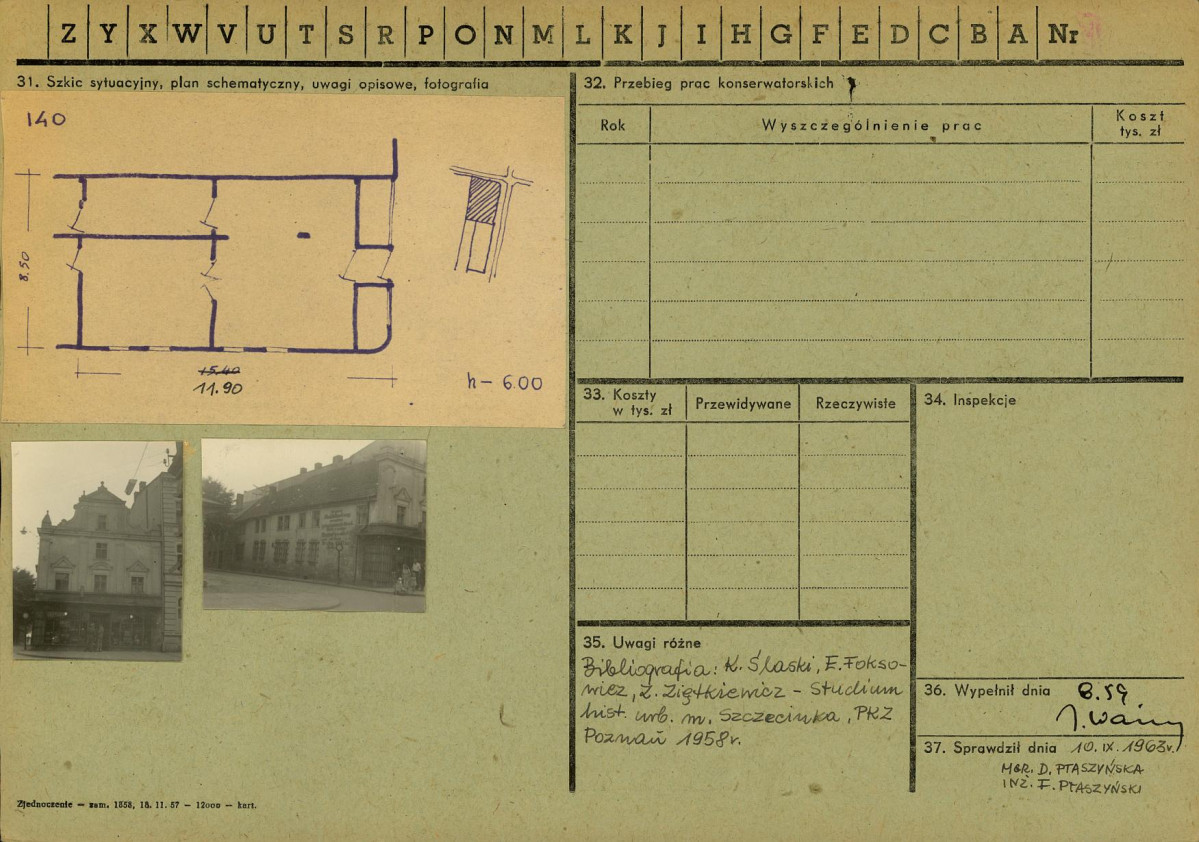 Z Y X W V U T S R P O N M L K J I H G F E D C B A Nr
31. Szkic sytuacyjny, plan schematyczny, uwagi opisowe, fotografia
140
8.50
15.40
11.90
h – 6.00
32. Przebieg prac konserwatorskich
Rok
Wyszczególnienie prac
Koszt
tys. zł
33. Koszty
w tys. zł
Przewidywane
Rzeczywiste
34. Inspekcje
35. Uwagi różne
Bibliografia: K. Ślaski, E. Fokso-
wicz, Z. Ziętkiewicz – Studium
hist. urb. m. Szczecinka, PKZ
Poznań 1958r.
36. Wypełnił dnia 8.59
37. Sprawdził dnia 10.IX.1963r.
MGR. D. PTASZYŃSKA
INŻ. F. PTASZYŃSKI
Zjednoczenie — zam. 1858, 18. 11. 57 — 12000 — kart.